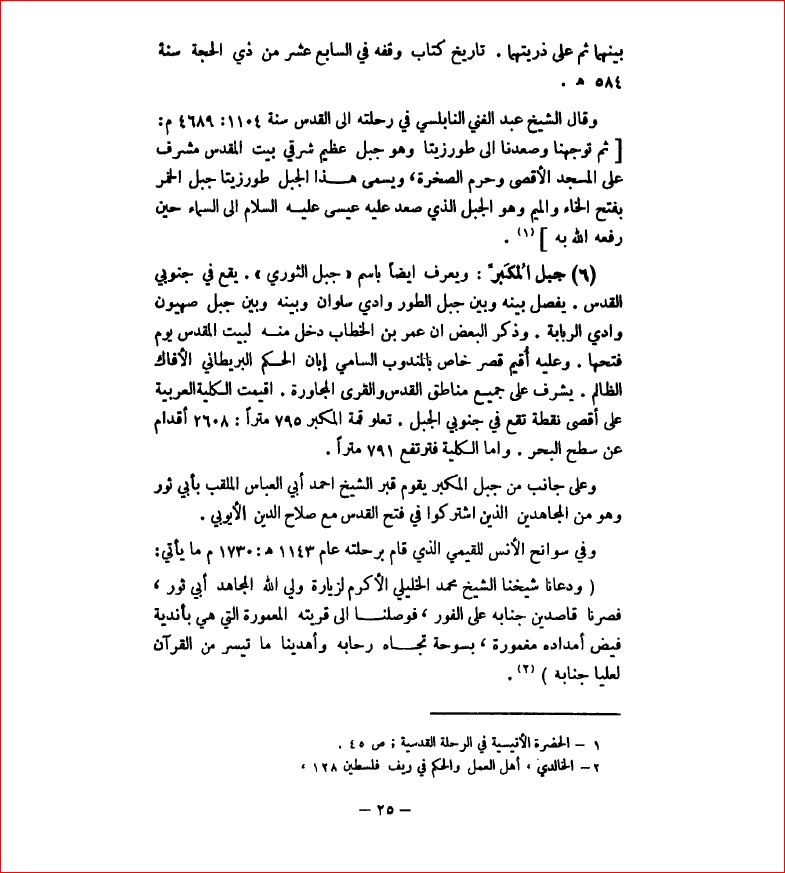 بينهما ثم على ذريتهما . تاريخ كتاب وقفه في السابع عشر من ذي الحجة سنة
٥٨٤ هـ .
وقال الشيخ عبد الغني النابلسي في رحلته الى القدس سنة ١١٠٤: ٤٦٨٩ م:
[ ثم توجهنا وصعدنا الى طورزيتا وهو جبل عظيم شرقي بيت المقدس مشرف
على المسجد الأقصى وحرم الصخرة، ويسمى هـــذا الجبل طورزيتا جبل الخمر
بفتح الخاء والميم وهو الجبل الذي صعد عليه عيسى عليـه السلام الى السماء حين
رفعه الله به ] (١) .
(٦) جبل المُكَبِّر : ويعرف ايضاً باسم « جبل الثوري » . يقع في جنوبي
القدس . يفصل بينه وبين جبل الطور وادي سلوان وبينه وبين جبل صهيون
وادي الربابة . وذكر البعض ان عمر بن الخطاب دخل منـه لبيت المقدس يوم
فتحها . وعليه أُقيم قصر خاص بالمندوب السامي إبان الحكم البريطاني الأفاك
الظالم . يشرف على جميـع مناطق القدس والقرى المجاورة . اقيمت الكلية العربية
على أقصى نقطة تقع في جنوبي الجبل . تعلو قمة المكبر ٧٩٥ متراً : ٢٦٠٨ أقدام
عن سطح البحر . واما الكلية فترتفع ٧٩١ متراً .
وعلى جانب من جبل المكبر يقوم قبر الشيخ احمد أبي العباس الملقب بأبي ثور
وهو من المجاهدين الذين اشتركوا في فتح القدس مع صلاح الدين الأيوبي .
وفي سوانح الأنس للقيمي الذي قام برحلته عام ١١٤٣ هـ: ١٧٣٠ م ما يأتي:
( ودعانا شيخنا الشيخ محمد الخليلي الأكرم لزيارة ولي الله المجاهد أبي ثور ،
فصرنا قاصدين جنابه على الفور ، فوصلنـــا الى قريته المعمورة التي هي بأندية
فيض أمداده مغمورة ، بسوحة تجـــاه رحابه وأهدينا ما تيسر من القرآن
لعليا جنابة ) (٢) .
١ – الحضرة الأنيسية في الرحلة القدسية ; ص ٤٥ .
٢ – الخالدي ، أهل العمل والحكم في ريف فلسطين ١٢٨ ،
– ٢٥ –